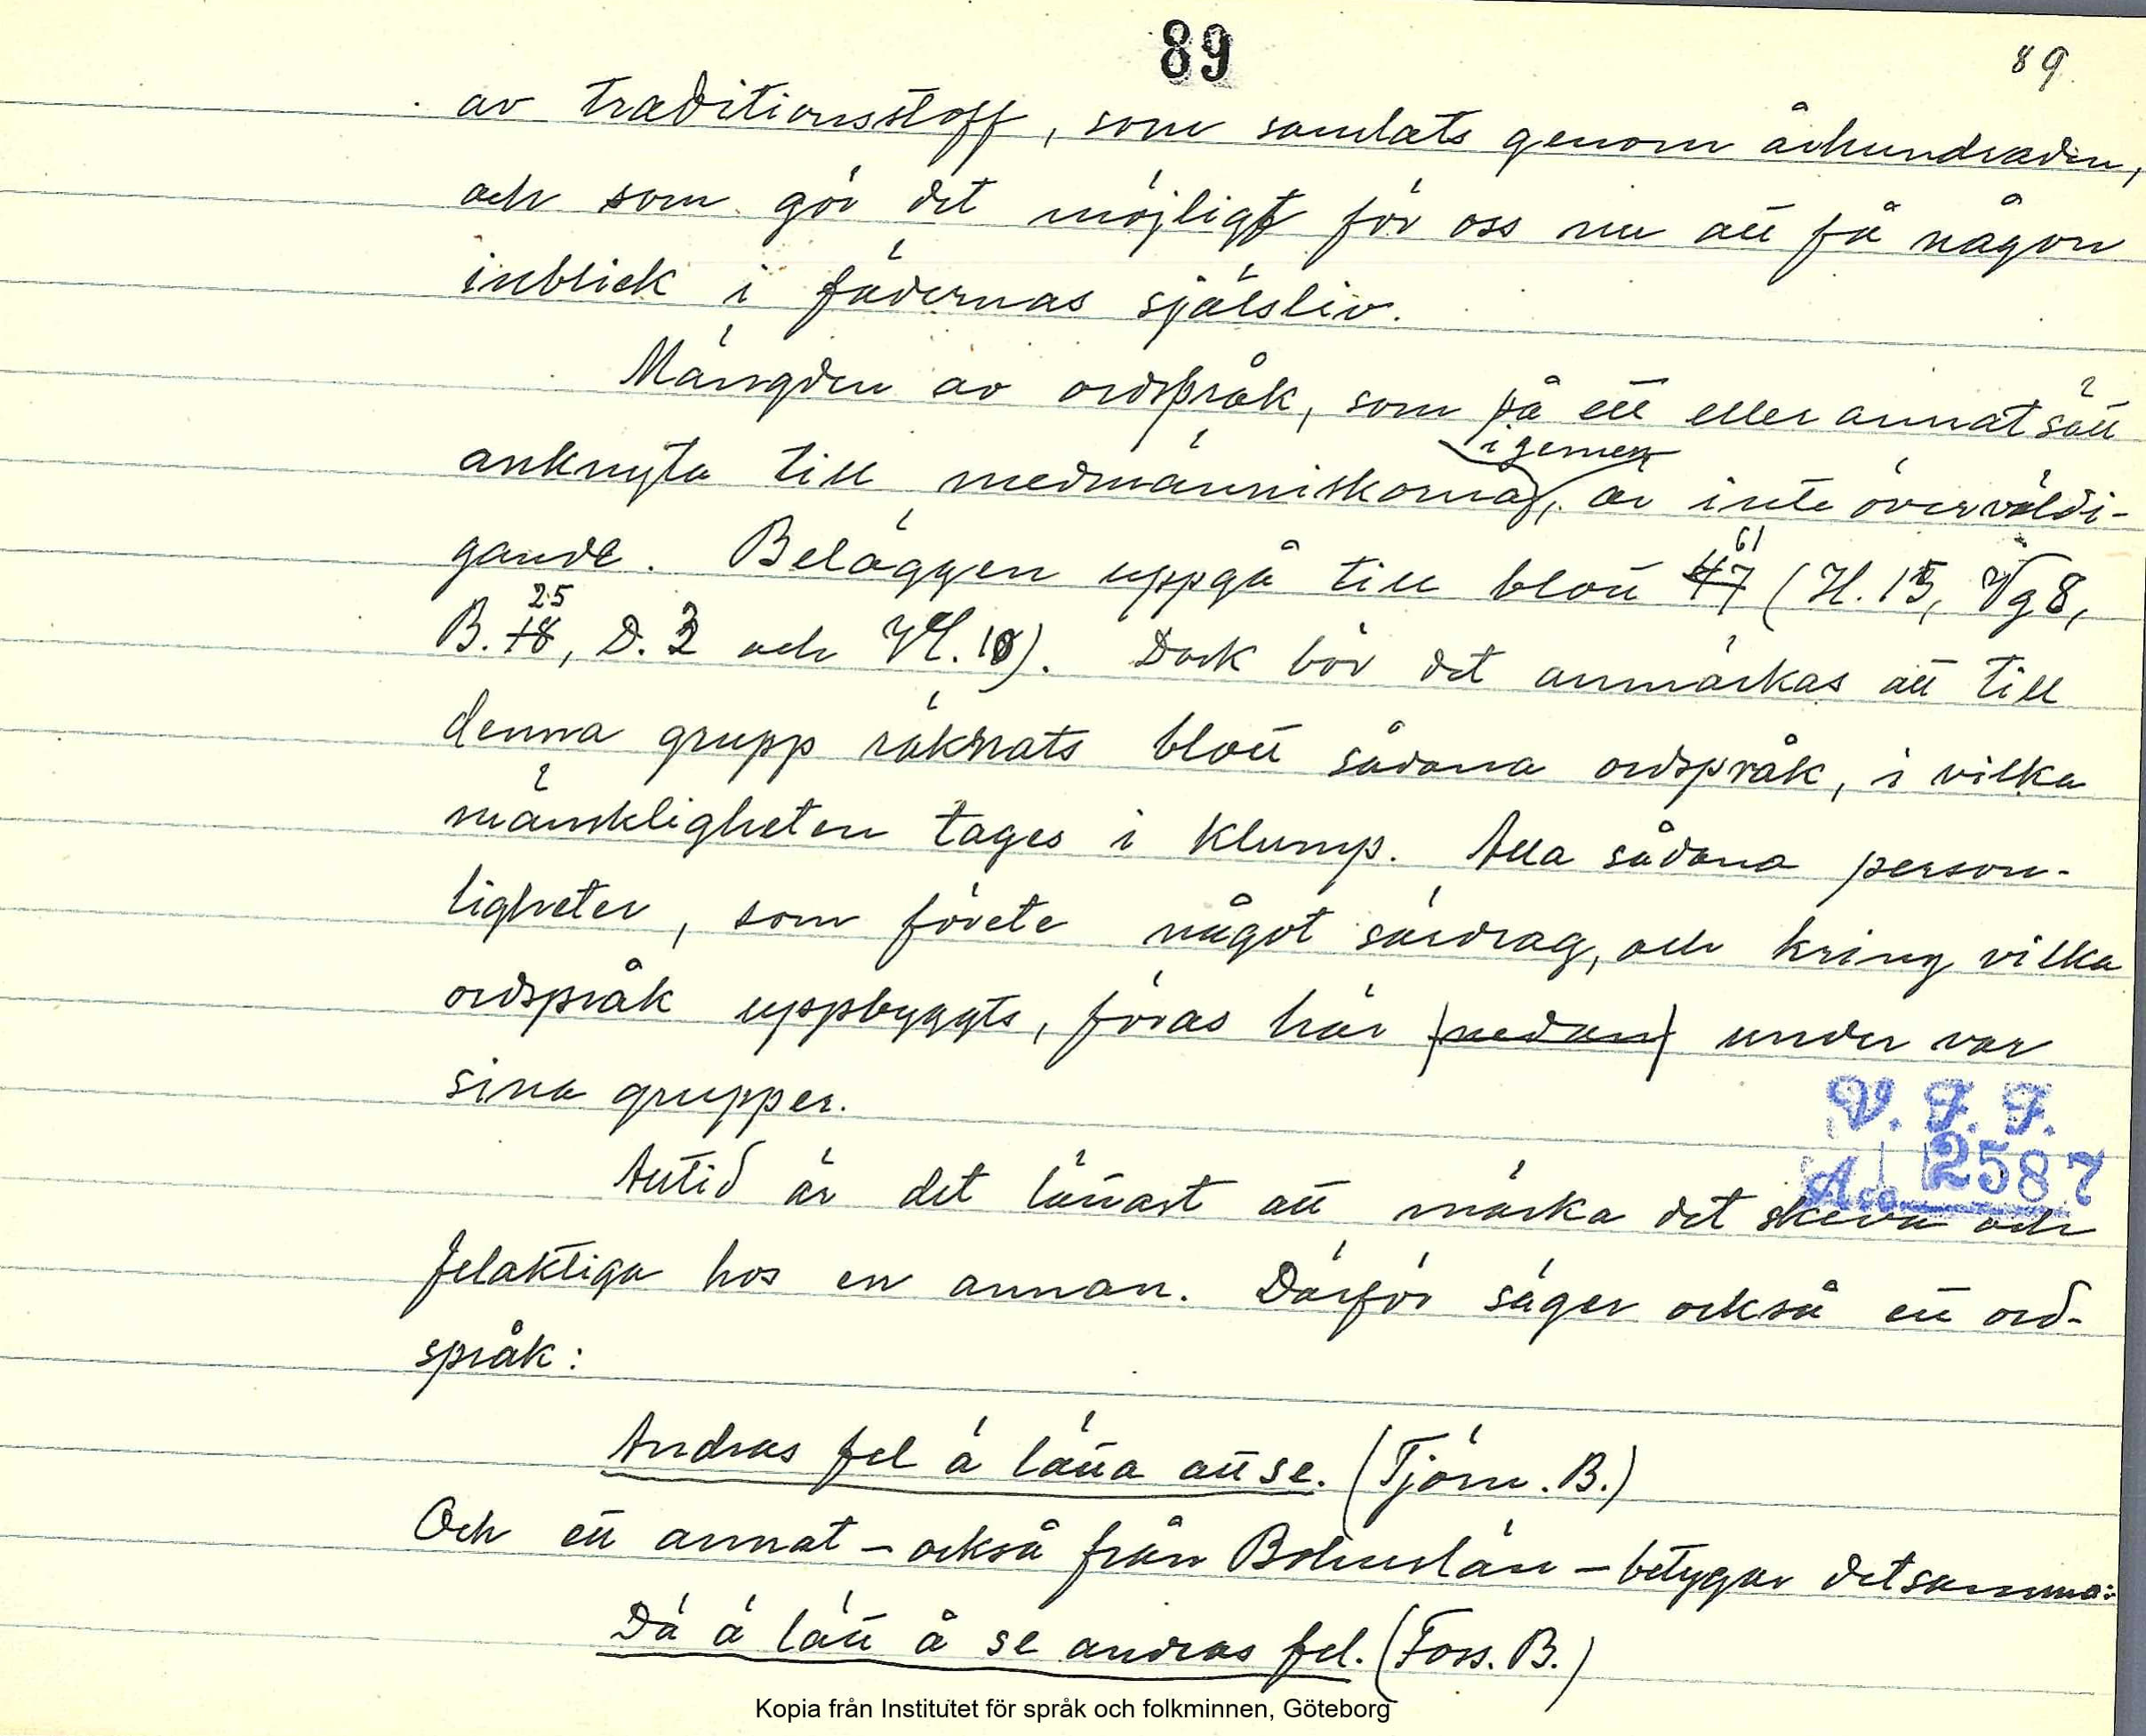 89
89
av traditionsstoff, som samlats genom århundraden,
och som gör det möjligt för oss nu att få någon
inblick i fädernas själsliv.
Mängden av ordspråk, som på ett eller annat sätt
i gemen
anknyta till medmänniskorna, är inte överväldi-
61
gande. Beläggen uppgå till blott 47 (H. 15, Vg 8,
25
B. 18, D. 3 och Vl. 10). Dock bör det anmärkas att till
denna grupp räknats blott sådana ordspråk, i vilka
mänskligheten tages i klump. Alla sådana person-
ligheter, som förete något särdrag, och kring vilka
ordspråk uppbyggts, föras här nedan under var
sina grupper.
V. F. F.
Acc. 2587
Alltid är det lättast att märka det skeva och
felaktiga hos en annan. Därför säger också ett ord-
språk:
Andras fel ä lätta att se. (Tjörn. B.)
Och ett annat - också från Bohuslän - betygar detsamma:
Dä ä lätt å se andras fel. (Foss. B.)
Kopia från Institutet för språk och folkminnen, Göteborg